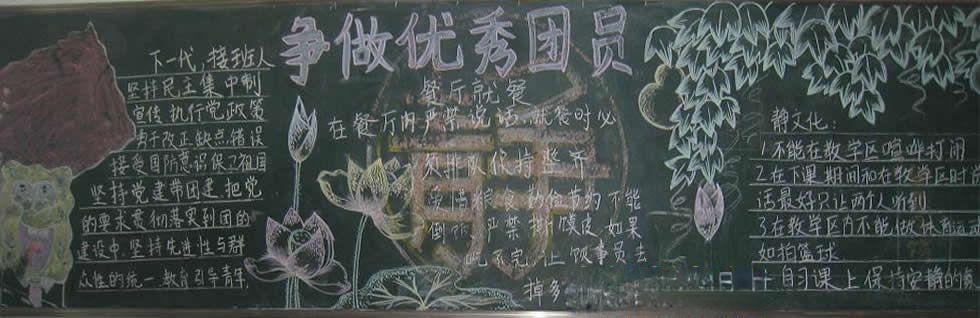 争做优秀团员
下一代,接班人
坚持民主集中制
宣传执行党政策
勇于改正缺点错误
接受国防意识保卫祖国
坚持党建带团建,把党
的要求贯彻落实到团的
建设中,坚持先进性与群
众性的统一教育引导青年,
餐厅就餐
在餐厅内严禁说话,就餐时必
须排队保持整齐
不能
倒 严禁撕膜皮如果
吃不完,让饭事员去
掉多
静文化:
1不能在教学区喧哗打闹
2在下课期间和在教学区时说
话最好只让两人听到
3在教学区内不能做体育运动
如拍篮球
自习课上保持安静的